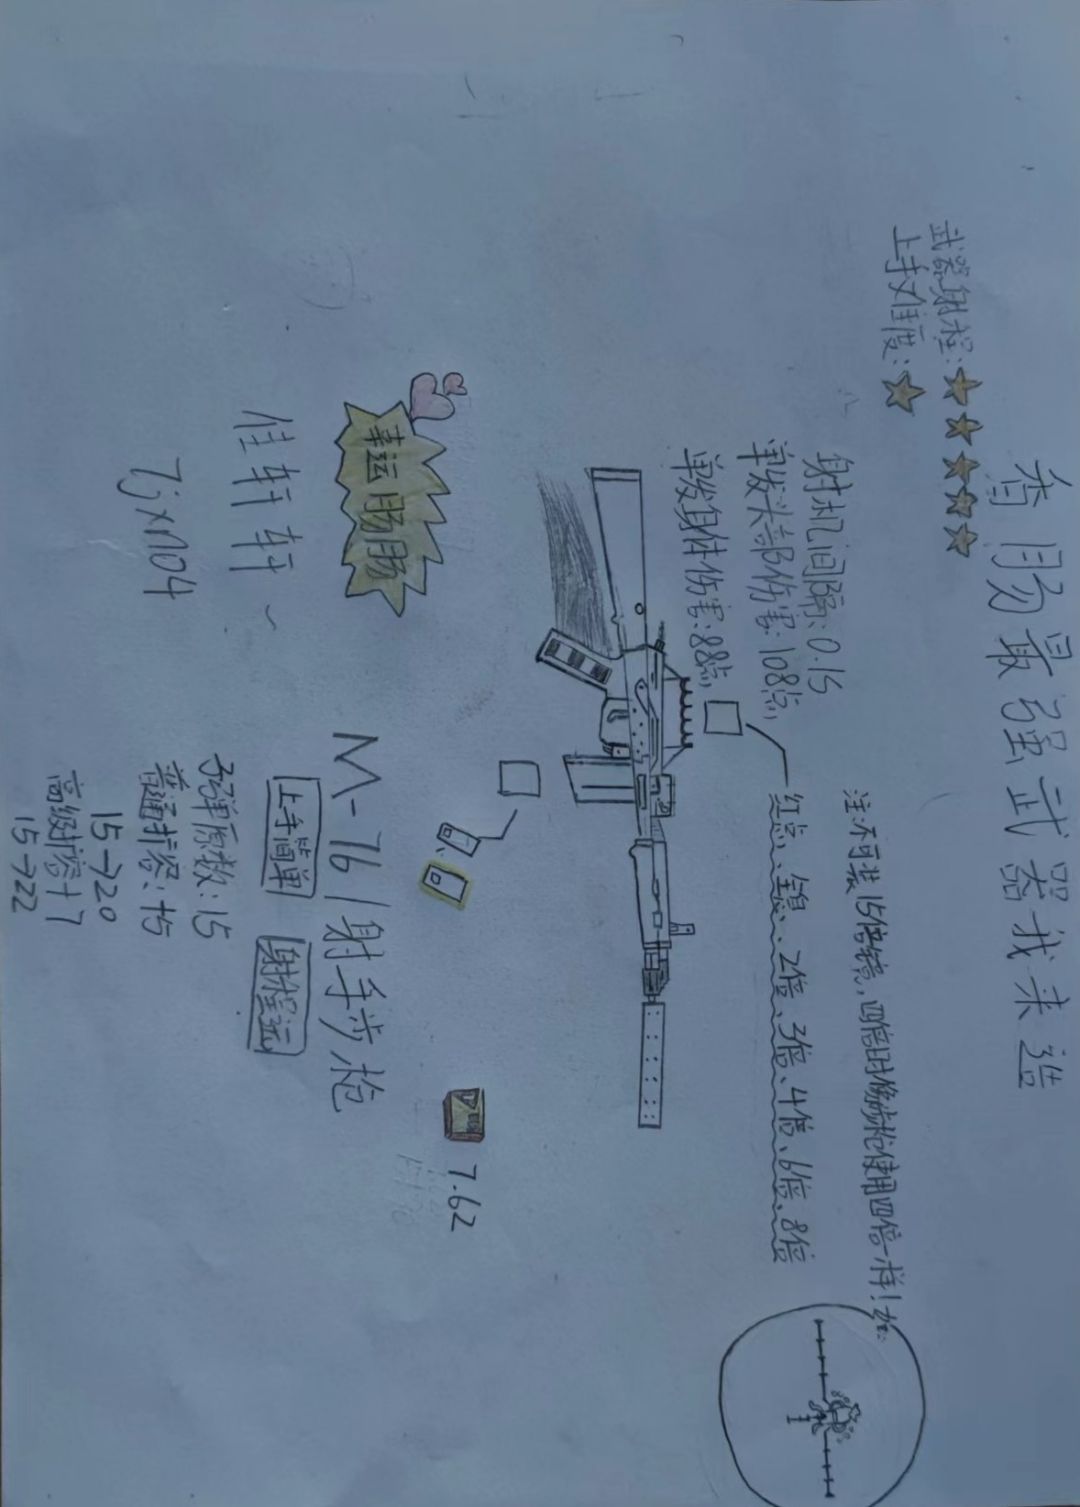 香肠最强武器我来造
武器射程:
上手难度:
射机间隔:0.1s
单发头部伤害:108点
单发身体伤害:88点
注:不可装15倍镜,四倍时像步枪使用四倍一样!如:
红点、全息、2倍、3倍、4倍、6倍、8倍
幸运肠肠
佳轩轩~
M-76/射手步枪
上手简单
射程远
7.62
子弹原数:15
普通扩容:+5
15→20
高级扩容+7
15→22